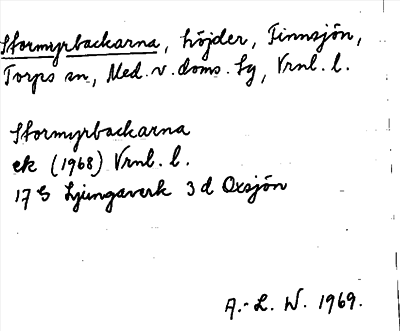 Stormyrbackarna, höjder, Finnsjön,
Torps sn, Med. v. doms. tg, Vrnl. l.
Stormyrbackarna
ek (1968) Vrnl. l.
17 G Ljungaverk 3 d Oxsjön
A.-L. W. 1969.